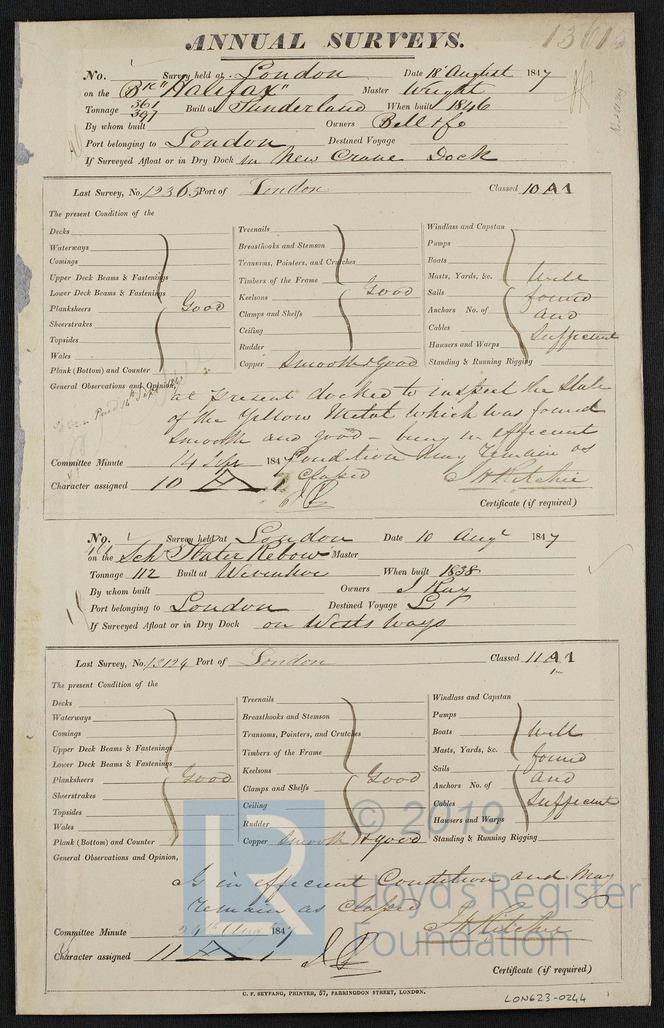 ANNUAL SURVEYS.
No. Survey held at London Date 18 August 1847
on the Bk "Halifax" Master Wright
Tonnage 361 397 Built at Sunderland When built 1846
By whom built Owners Bell & Co
Port belonging to London Destined Voyage
If Surveyed Afloat or in Dry Dock in New Crane Dock
Last Survey, No. 12365 Port of London Classed 10 A1
The present Condition of the
Decks
Waterways
Comings
Upper Deck Beams & Fastenings
Lower Deck Beams & Fastenings
Planksheers
Sheerstrakes
Topsides
Wales
Plank (Bottom) and Counter
Good
Treenails
Breasthooks and Stemson
Transoms, Pointers, and Crutches
Timbers of the Frame
Keelsons
Clamps and Shelfs
Ceiling
Rudder
Good
Copper Smooth & Good
Windlass and Capstan
Pumps
Boats
Masts, Yards, &c.
Sails
Anchors No. of
Cables
Hawsers and Warps
Standing & Running Rigging
Well
found
and
Sufficient
General Observations and Opinion,
at present docked to inspect the State
of the Yellow Metal which was found
Smooth and good - being in efficient
Condition May remain as
Classed
Committee Minute 14 Sepr 1847
Character assigned 10 A 1
J H Ritchie
Certificate (if required)
No. Survey held at London Date 10 Augt 1847
on the Sch Slater Rebow Master
Tonnage 112 Built at Wivenhoe When built 1838
By whom built Owners J Kay
Port belonging to London Destined Voyage
If Surveyed Afloat or in Dry Dock on Wests Ways
Last Survey, No. 13124 Port of London Classed 11 A1
The present Condition of the
Decks
Waterways
Comings
Upper Deck Beams & Fastenings
Lower Deck Beams & Fastenings
Planksheers
Sheerstrakes
Topsides
Wales
Plank (Bottom) and Counter
Good
Treenails
Breasthooks and Stemson
Transoms, Pointers, and Crutches
Timbers of the Frame
Keelsons
Clamps and Shelfs
Ceiling
Rudder
Good
Copper Smooth & good
Windlass and Capstan
Pumps
Boats
Masts, Yards, &c.
Sails
Anchors No. of
Cables
Hawsers and Warps
Standing & Running Rigging
Well
found
and
Sufficient
General Observations and Opinion,
Is in efficient Condition and May
remain as Classed
Committee Minute 24th Augt 1847
Character assigned 11 A 1
J H Ritchie
Certificate (if required)
C. F. SEYFANG, PRINTER, 57, FARRINGDON STREET, LONDON.
LON623-0244
© 2019
Lloyd's Register
Foundation